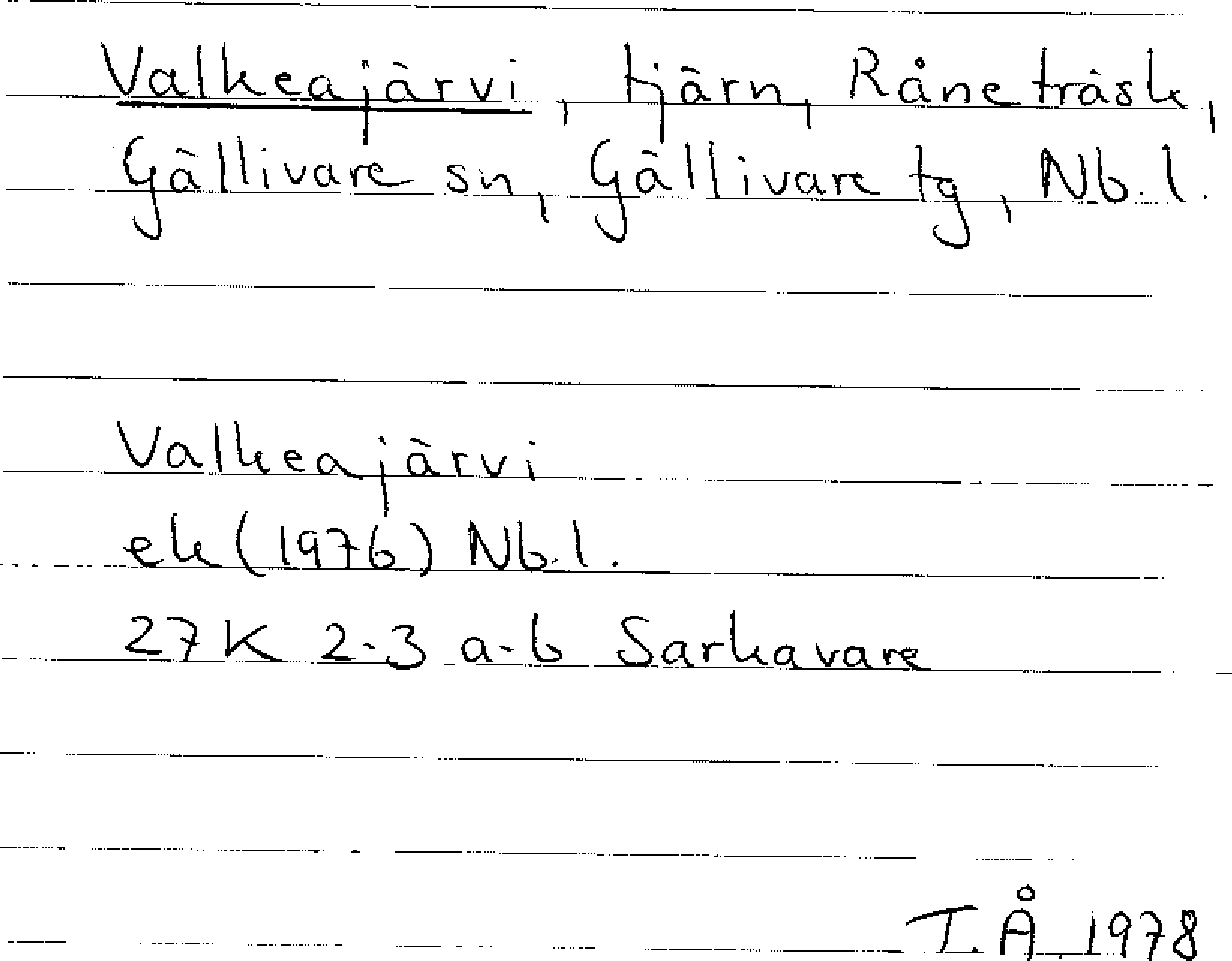 Valkeajärvi, tjärn, Råneträsk,
Gällivare sn, Gällivare tg, Nb.l.
Valkeajärvi
ek (1976) Nb.l.
27K 2-3 a-b Sarkavare
T.Å. 1978